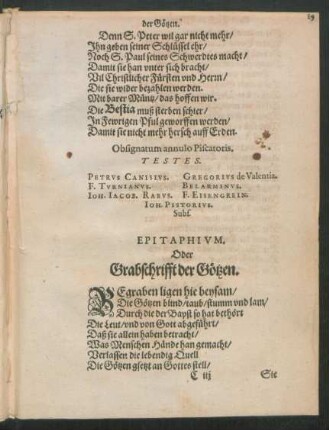 der Götzen.
19
Denn S. Peter wil gar nicht mehr/
Ihn geben seiner Schlüssel ehr/
Noch S. Paul seines Schwerdtes macht/
Damit sie han vnter sich bracht/
Vil Christlicher Fürsten vnd Herrn/
Die sie wider bezahlen werden.
Mit barer Müntz/ das hoffen wir.
Die Bestia muß sterben schier/
In Fewrigen Pful geworffen werden/
Damit sie nicht mehr hersch auff Erden.
Obsignatum annulo Piscatoris.
TESTES.
PETRVS CANISIVS. GREGORIVS de Valentia.
F. TVRNIANVS. BELARMINVS.
IOH. IACOB. RABVS. F. EISENGREIN.
IOH. PISTORIVS.
Subs.
EPITAPHIVM.
Oder
Grabschrifft der Götzen.
BEgraben ligen hie beysam/
Die Götzen blind/ taub/ stumm vnd lam/
Durch die der Bapst so hat bethört
Die Leut/ vnd von Gott abgeführt/
Daß sie allein haben betracht/
Was Menschen Hände han gemacht/
Verlassen die lebendig Quell
Die Götzen gsetzt an Gottes stell/
C iij Sie